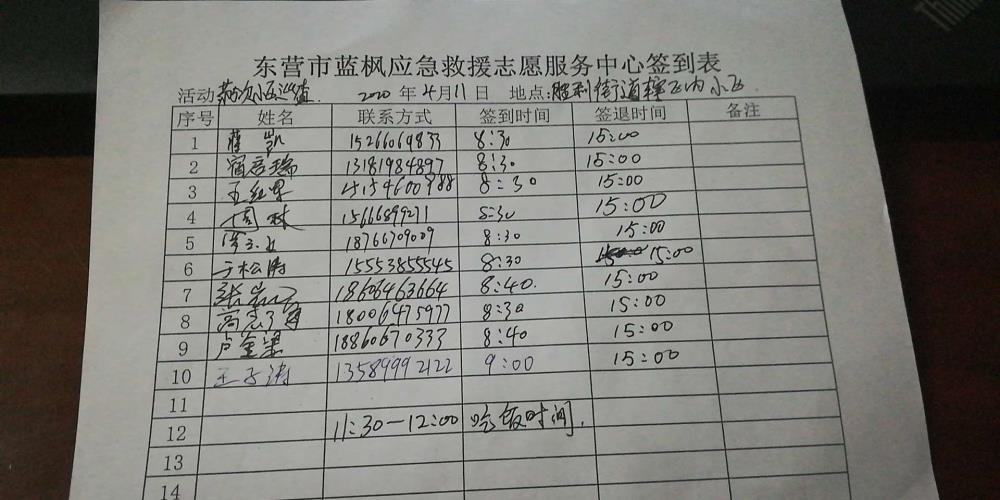 东营市蓝枫应急救援志愿服务中心签到表
活动 小区巡查 2020年4月11日 地点:胜利街道辖区内小区
序号 姓名 联系方式 签到时间 签退时间 备注
1 薛凯 15266069833 8:30 15:00
2 13181984897 8:30 15:00
3 8:30 15:00
4 周林 15666899271 8:30 15:00
5 18766709009 8:30 15:00
6 于松涛 15553855545 8:30 15:00
7 张 18606463664 8:40. 15:00
8 高 18006475977 8:30 15:00
9 卢金梁 18860670333 8:40 15:00
10 王子涛 13589992122 9:00 15:00
11
12 11:30—12:00 吃饭时间.
13
14